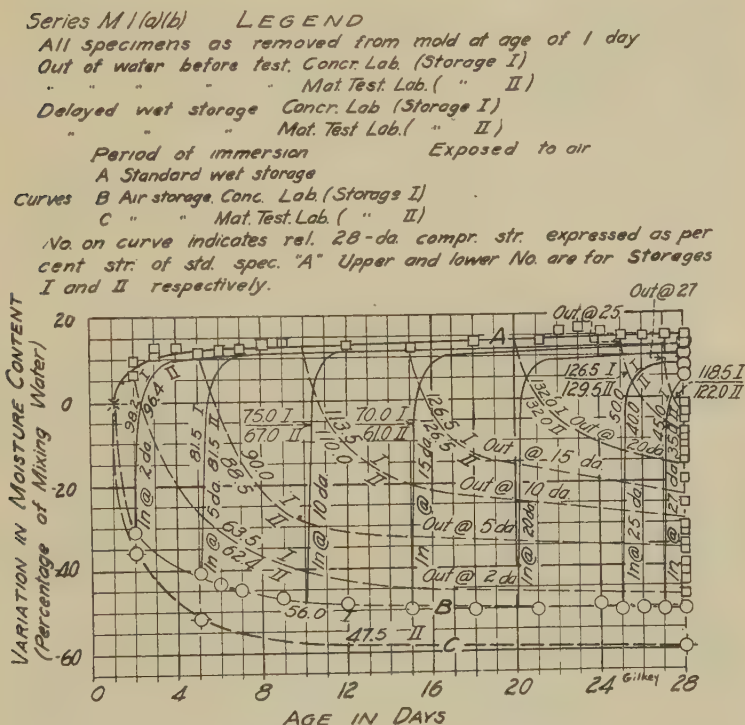 Series M 1(a)(b) LEGEND
All specimens as removed from mold at age of 1 day
Out of water before test. Concr. Lab. (Storage I)
" " " " Mat. Test. Lab. ( " II)
Delayed wet storage Concr. Lab (Storage I)
" " " Mat. Test Lab. ( " II)
Period of immersion Exposed to air
A Standard wet storage
Curves B Air storage. Conc. Lab. (Storage I)
C " " Mat. Test. Lab. ( " II)
No. on curve indicates rel. 28-da. compr. str. expressed as per
cent str. of std. spec. "A" Upper and lower No. are for Storages
I and II respectively.
VARIATION IN MOISTURE CONTENT
(Percentage of Mixing Water)
20
0
-20
-40
-60
Out @ 25
Out @ 27
A
98.2 I
96.4 II
In @ 2 da.
81.5 I
81.5 II
In @ 5 da.
90.0 I
88.5 II
63.5 I
62.4 II
75.0 I
67.0 II
113.5 I
111.0 II
In @ 10 da.
70.0 I
61.0 II
In @ 15 da.
126.5 I
126.5 II
In @ 20 da.
132.0 I
132.0 II
126.5 I
129.5 II
50.0 I
40.0 II
In @ 25 da
45.0 I
35.0 II
In @ 27 da.
118.5 I
122.0 II
Out @ 20 da.
Out @ 15 da.
Out @ 10 da.
Out @ 5 da
Out @ 2 da.
56.0 I
B
47.5 II
C
Gilkey
0 4 8 12 16 20 24 28
AGE IN DAYS